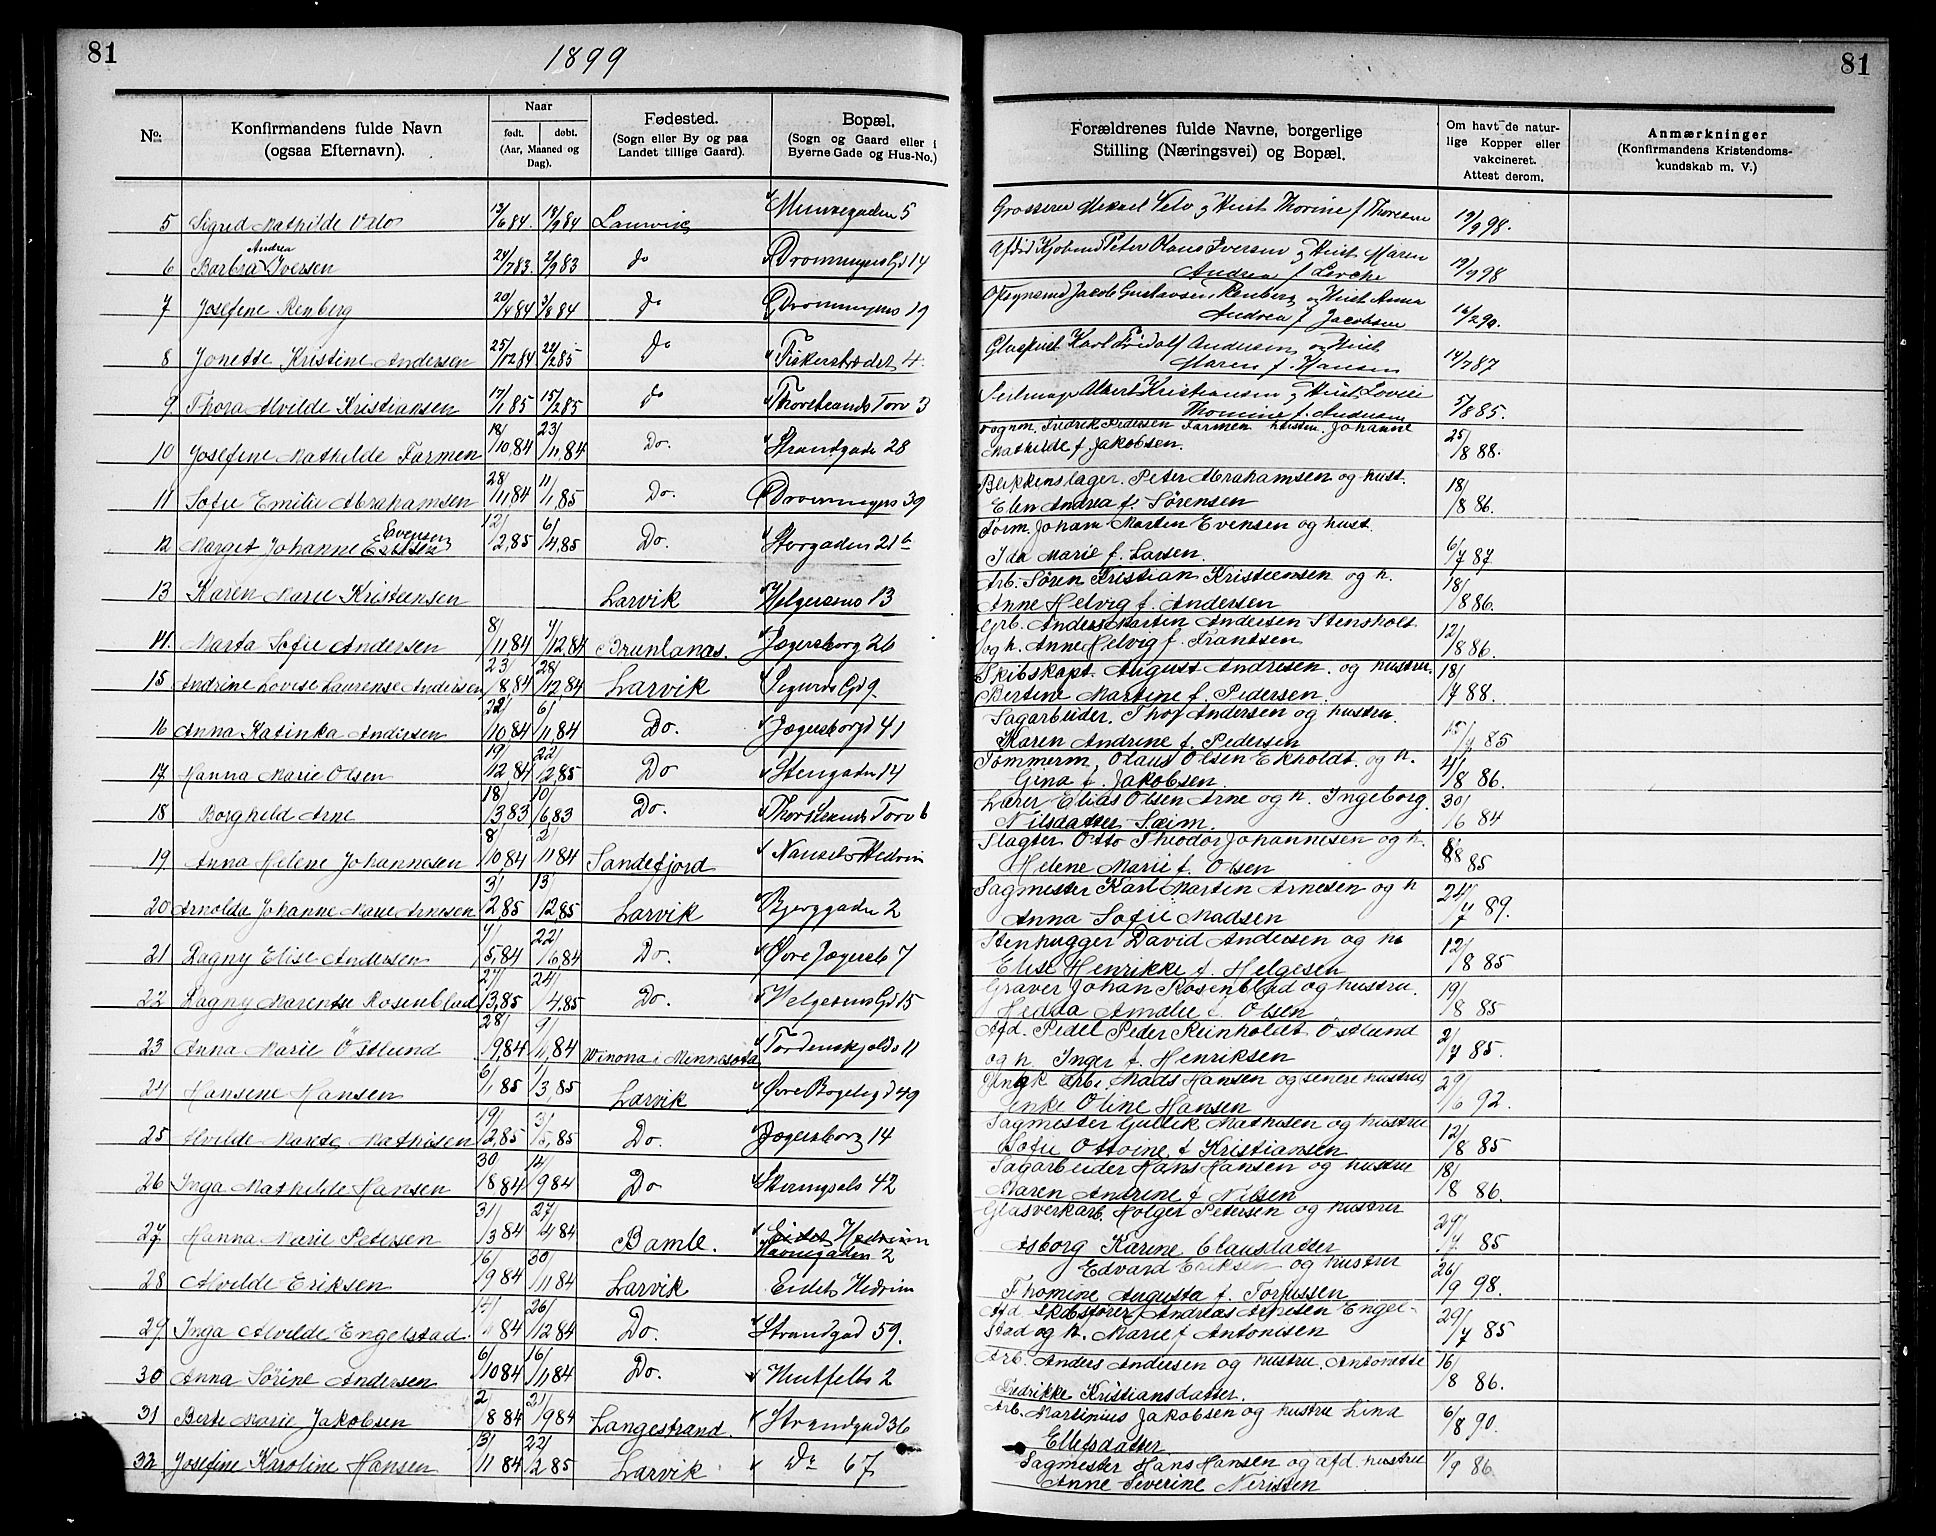 81
1899
No.
Konfirmandens fulde Navn
(ogsaa Efternavn).
Naar
født. døbt.
(Aar, Maaned og
Dag).
Fødested.
(Sogn eller By og paa
Landet tillige Gaard).
Bopæl.
(Sogn og Gaard eller i
Byerne Gade og Hus-No.)
5 Sigrid Mathilde Velo Laurvig Munkegaden 5
Andrea
6 Barbra Iversen 24/7 83. 2/9 83 do Dronningens Gd 14
7 Josefine Renberg 20/4 84 3/8 84 do Dronningens 19
8 Jonette Kristine Andersen 25/12 84 22/2 85 do Fiskerstrædet 4
9 Thora Alvilde Kristiansen 17/1 85 15/2 85 do Thorstrands Torv 3
10 Josefine Mathilde Farmen 18/10,84 23/11,84 Do. Strandgade 28
11 Sofie Emilie Abrahamsen 28/11,84 11/1,85 Do. Dronningens 39
Evensen
12 Marget Johanne 12/2,85 6/4,85 Do. Storgaden 21b
13 Karen Marie Kristensen Larvik Helgesens 13
14. Marta Sofie Andersen 8/11,84 7/12,84 Brunlanæs. Jegersborg 26
15 Andrine Lovise Laurense Andersen 23/8,84 28/12,84 Larvik Sigurds Gd 9.
16 Anna Katinka Andersen 22/10 84 6/11,84 Do. Jegersborgd 41
17 Hanna Marie Olsen 19/12,84 22/2,85 Do Stengaden 14
18 Borghild Arne 18/3 83 10/6,83 Do. Thorstrands Torv 6
19 Anna Helene Johannesen 8/10,84 2/11 84 Sandefjord Nanset Hedrum
20 Arnolda Johanne Marie Arnesen 3/2,85 13/12,85 Larvik Bjerggaden 2
21 Dagny Elise Andersen 7/5,84 22/6 84 Do. Øvre Jegersb 7
22 Dagny Marentse Rosenblad 27/3,85 24/4,85 Do. Helgesens Gd 15
23 Anna Marie Östlund 28/9,84 9/11,84 Winona i Mennesota Tordenskjolds 11
24 Hansene Hansen 6/1,85 1/3,85 Larvik Øvre Bøgeligd 49
25 Alvilde Marte Mathisen 19/2,85 3/5,85 Do. Jegersborg 14
26 Inga Mathilde Hansen 30/8 84 14/9 84 Do Skiringsals 42
27 Hanna Marie Petersen 31/3 84 27/4 84 Bamle. Eidet Hedrum
Havnegaden 2
28 Alvilde Eriksen 16/9 84 30/11 84 Larvik Eidet Hedrum
29 Inga Alvilde Engelstad. 26/12 84 Do. Strandgad 59.
30 Anna Sørine Andersen 6/10 84 16/11,84 Do. Huitfelts 2
31 Berte Marie Jakobsen 2/8 84 21/9 84 Langestrand. Strandgad 36
32 Josefine Karoline Hansen 13/11 84 22/2 85 Larvik Do 67
81
Forældrenes fulde Navne, borgerlige
Stilling (Næringsvei) og Bopæl.
Om havt de natur-
lige Kopper eller
vakcineret.
Attest derom.
Anmærkninger
(Konfirmandens Kristendoms-
kundskab m. V.)
Grosserer Mikael Velo og Hust Thorine f Thoresen 19/9 98.
Peter Olaus Iversen og Hust Maren
Andrea f. Lerche 19/9 98
Opsynsmd Jacob Gustavsen Renberg og Hust Anna
Andrea f Jacobsen 16/2 90.
Karl Fridolf Andersen og Hust
Maren f. Hansen 14/7 87
Seilmag Albert Kristiansen og Hust Lovise
Thomine f. Andersen 5/8 85.
Vognm. Fredrik Pedersen Farmen hustru. Johanne
Mathilde f. Jakobsen. 25/8 88.
Blikkenslager. Peter Abrahamsen og hust.
Elen Andrea f. Sørensen 18/8 86.
Tøm. Johan Martin Evensen og hust.
Ida Marie f. Larsen. 6/7 87
Arb. Søren Kristian Kristensen og h.
Anne Helvig f. Andersen 18/8 86.
Arb. Anders Martin Andersen Stensholt
og h. Anne Helvig f. Frantsen 12/8 86.
Skibskapt. August Andresen. og hustru.
Bertine Martine f. Pedersen. 18/7 88.
Sagarbeider. Thor Andersen og hustru.
Karen Andrine f. Pedersen 15/7 85
Tømmerm, Olaus Olsen Ekholdt. og h.
Gina f. Jakobsen 4/8 86.
Lærer Elias Olsen Arne og h. Ingeborg.
Nilsdatter Sæim. 30/6 84
Slagter Otto Theodor Johannesen og h.
Helene Marie f. Olsen 85
Sagmester Karl Martin Arnesen og h
Anna Sofie Madsen 24/7 89.
Stenhugger David Andersen og h
Elise Henrikke f. Helgesen 12/8 85
Graver Johan Rosenblad og hustru.
Hedda Amalie f. Olsen 19/8 85
Afd. Pedel Peder Reinholdt Östlund
og h. Inger f. Henriksen 2/7 85.
arb. Mads Hansen og senere hustru
enke Oline Hansen 29/6 92.
Sagmester Gullik Mathisen og hustru
Sofie Ottoine f Kristiansen 12/8 85
Sagarbeider Hans Hansen og hustru
Maren Andrine f Nilsen 18/8 86.
Glasverkarb. Holger Petersen og hustru
Asborg Karine Clausdatter 29/7 85
Edvard Eriksen og hustru
Thomine Augusta f. Torjussen 26/9 98.
Afd. Skibsfører Andreas Arnesen Engel-
stad og h. Marie f Antonisen 29/7 85
Arb. Anders Andersen og hustru. Antonette
Fredrikke Kristiansdatter. 16/8 86.
Arb. Martinius Jakobsen og hustru Lina
Ellefsdatter 6/8 90.
Sagmester Hans Hansen og afd. hustru
Anne Severine Niristen 1/9 86